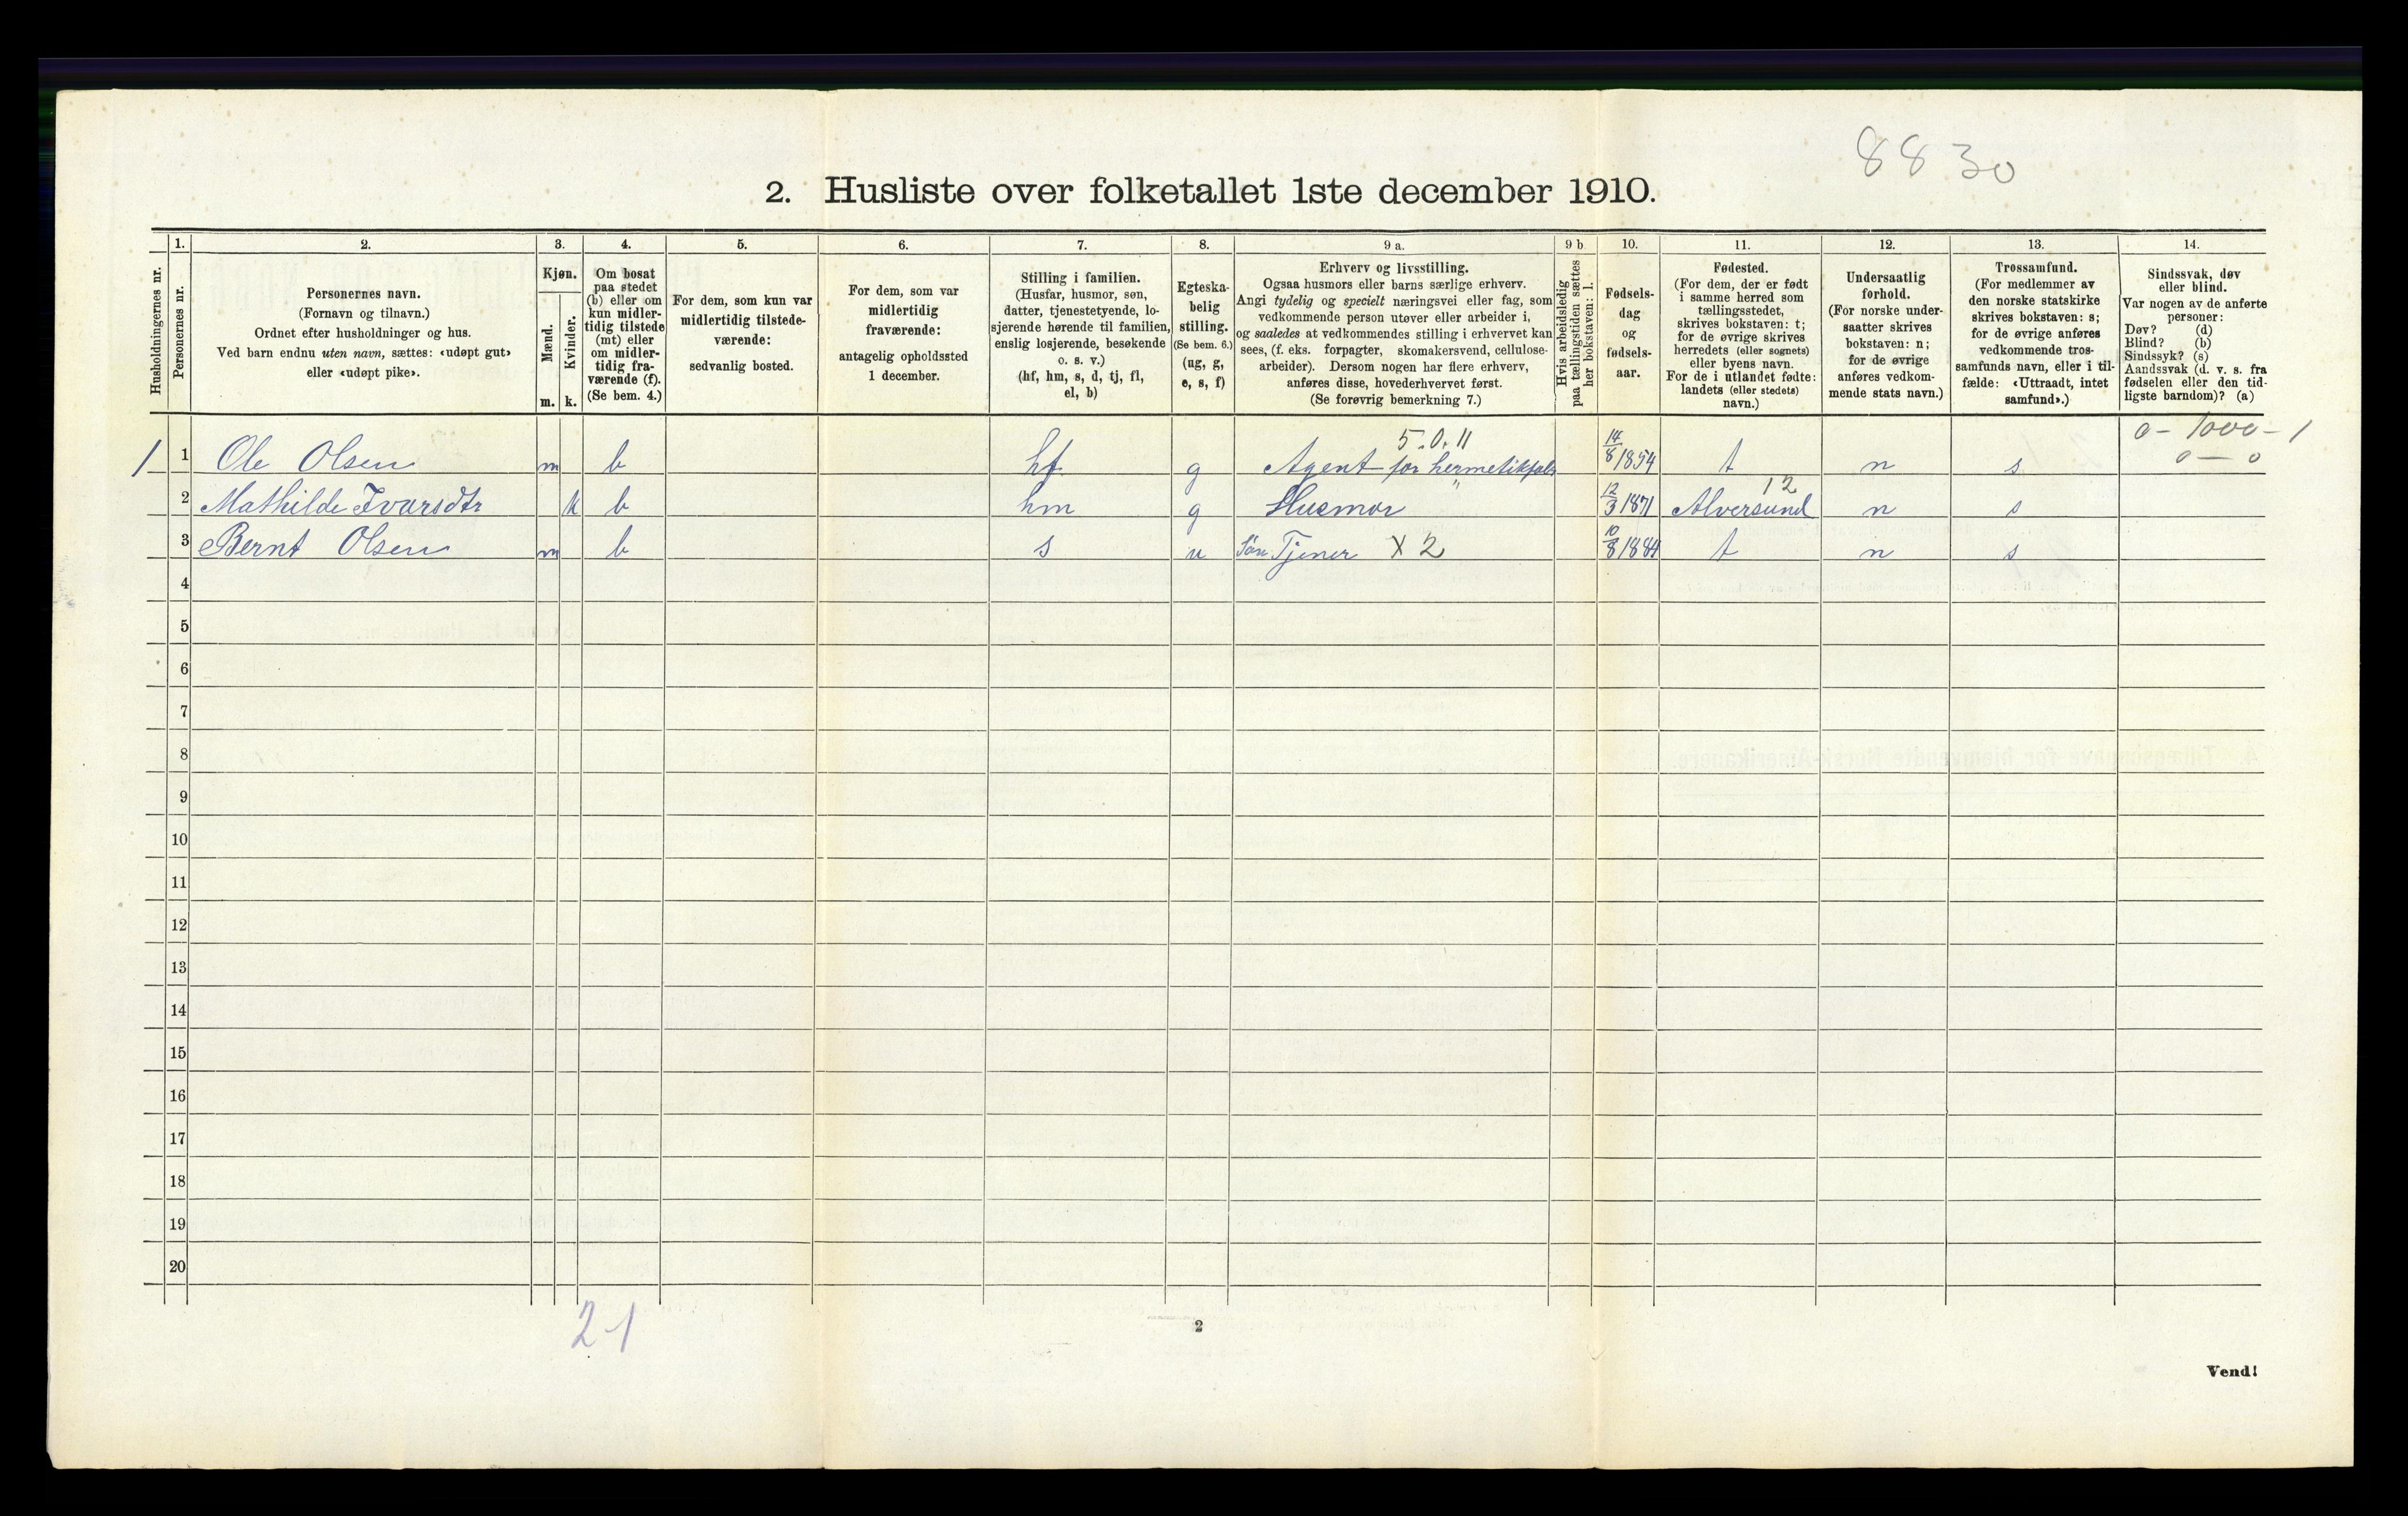 8830
2. Husliste over folketallet 1ste december 1910.
Husholdningernes nr.
1.
Personernes nr.
2.
Personernes navn.
(Fornavn og tilnavn.)
Ordnet efter husholdninger og hus.
Ved barn endnu uten navn, sættes: «udøpt gut»
eller «udøpt pike».
3.
Kjøn.
Mænd.
Kvinder.
m. k.
4.
Om bosat
paa stedet
(b) eller om
kun midler-
tidig tilstede
(mt) eller
om midler-
tidig fra-
værende (f).
(Se bem. 4.)
5.
For dem, som kun var
midlertidig tilstede-
værende:
sedvanlig bosted.
6.
For dem, som var
midlertidig
fraværende:
antagelig opholdssted
1 december.
7.
Stilling i familien.
(Husfar, husmor, søn,
datter, tjenestetyende, lo-
sjerende hørende til familien,
enslig losjerende, besøkende
o. s. v.)
(hf, hm, s, d, tj, fl,
el, b)
8.
Egteska-
belig
stilling.
(Se bem. 6.)
(ug, g,
e, s, f)
9 a.
Erhverv og livsstilling.
Ogsaa husmors eller barns særlige erhverv.
Angi tydelig og specielt næringsvei eller fag, som
vedkommende person utøver eller arbeider i,
og saaledes at vedkommendes stilling i erhvervet kan
sees, (f. eks. forpagter, skomakersvend, cellulose-
arbeider). Dersom nogen har flere erhverv,
anføres disse, hovederhvervet først.
(Se forøvrig bemerkning 7.)
9 b
Hvis arbeidsledig
paa tællingstiden sættes
her bokstaven: l.
10.
Fødsels-
dag
og
fødsels-
aar.
11.
Fødested.
(For dem, der er født
i samme herred som
tællingsstedet,
skrives bokstaven: t;
for de øvrige skrives
herredets (eller sognets)
eller byens navn.
For de i utlandet fødte:
landets (eller stedets)
navn.)
12.
Undersaatlig
forhold.
(For norske under-
saatter skrives
bokstaven: n;
for de øvrige
anføres vedkom-
mende stats navn.)
13.
Trossamfund.
(For medlemmer av
den norske statskirke
skrives bokstaven: s;
for de øvrige anføres
vedkommende tros-
samfunds navn, eller i til-
fælde: «Uttraadt, intet
samfund».)
14.
Sindssvak, døv
eller blind.
Var nogen av de anførte
personer:
Døv? (d)
Blind? (b)
Sindssyk? (s)
Aandssvak (d. v. s. fra
fødselen eller den tid-
ligste barndom)? (a)
5.0.11 0 - 1000 - 1
1 1 Ole Olsen m b hf g Agent for hermetikfabr 14/8 1854 t n s 0 — 0
12
2 Mathilde Ivarsdtr k b hm g Husmor " 12/3 1871 Alversund n s
3 Bernt Olsen m b s u Søn Tjener X 2 10/8 1884 t n s
4
5
6
7
8
9
10
11
12
13
14
15
16
17
18
19
20
2-1
2
Vend!